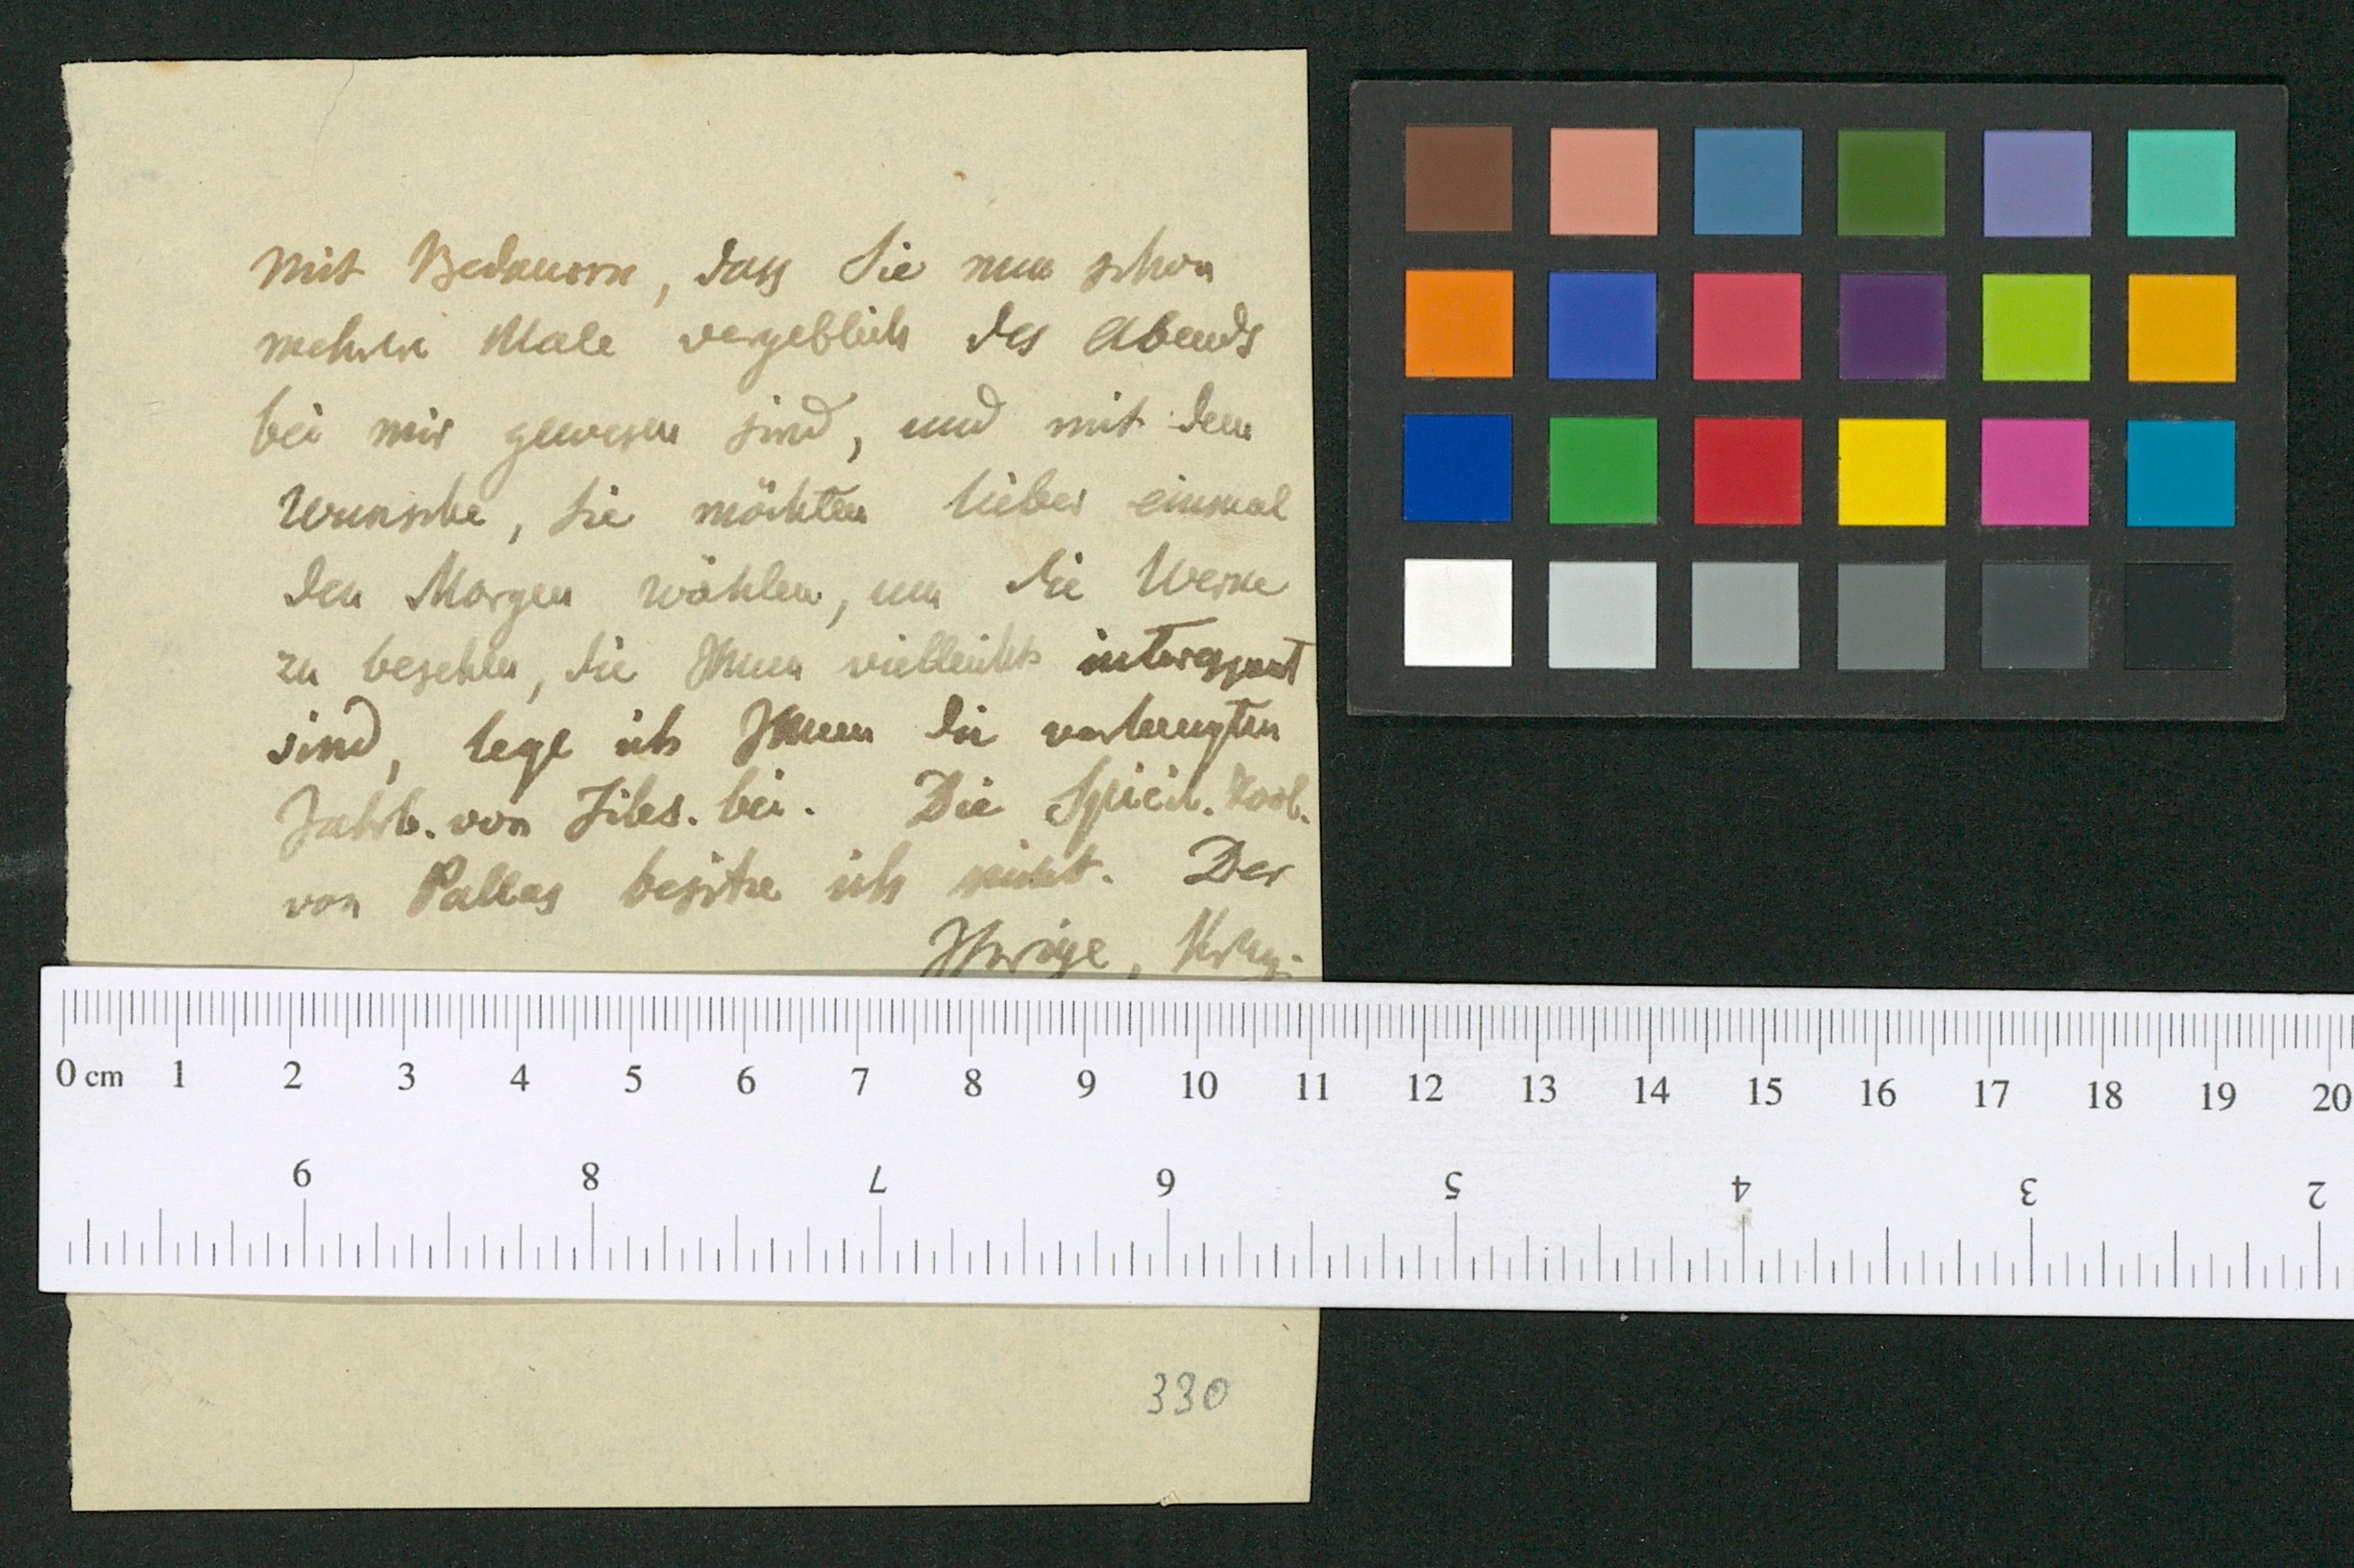 Mit Bedauern, dass Sie nun schon
mehrere Male vergeblich des Abends
bei mir gewesen sind, und mit dem
Wunsche, Sie möchten lieber einmal
den Morgen wählen, um die Werke
zu besehen, die Ihnen vielleicht interessant
sind, lege ich Ihnen die verlangten
Jahrb. von Sibir. bei. Die Spicil. Zool.
von Pallas besitze ich nicht. Der
Ihrige,
0 cm 1 2 3 4 5 6 7 8 9 10 11 12 13 14 15 16 17 18 19 20
9 8 7 6 5 4 3 2
330